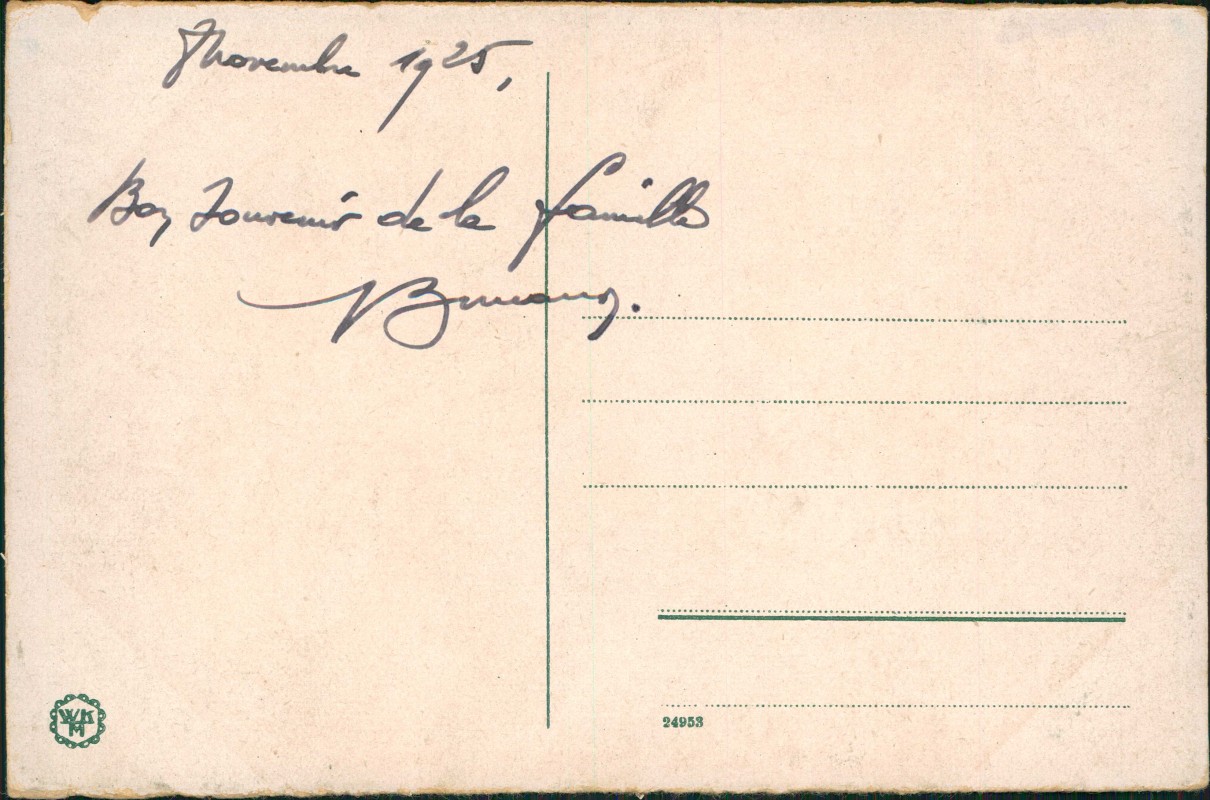 Novembre 1925,
Bon Souvenir de la famille
WK
M
24953